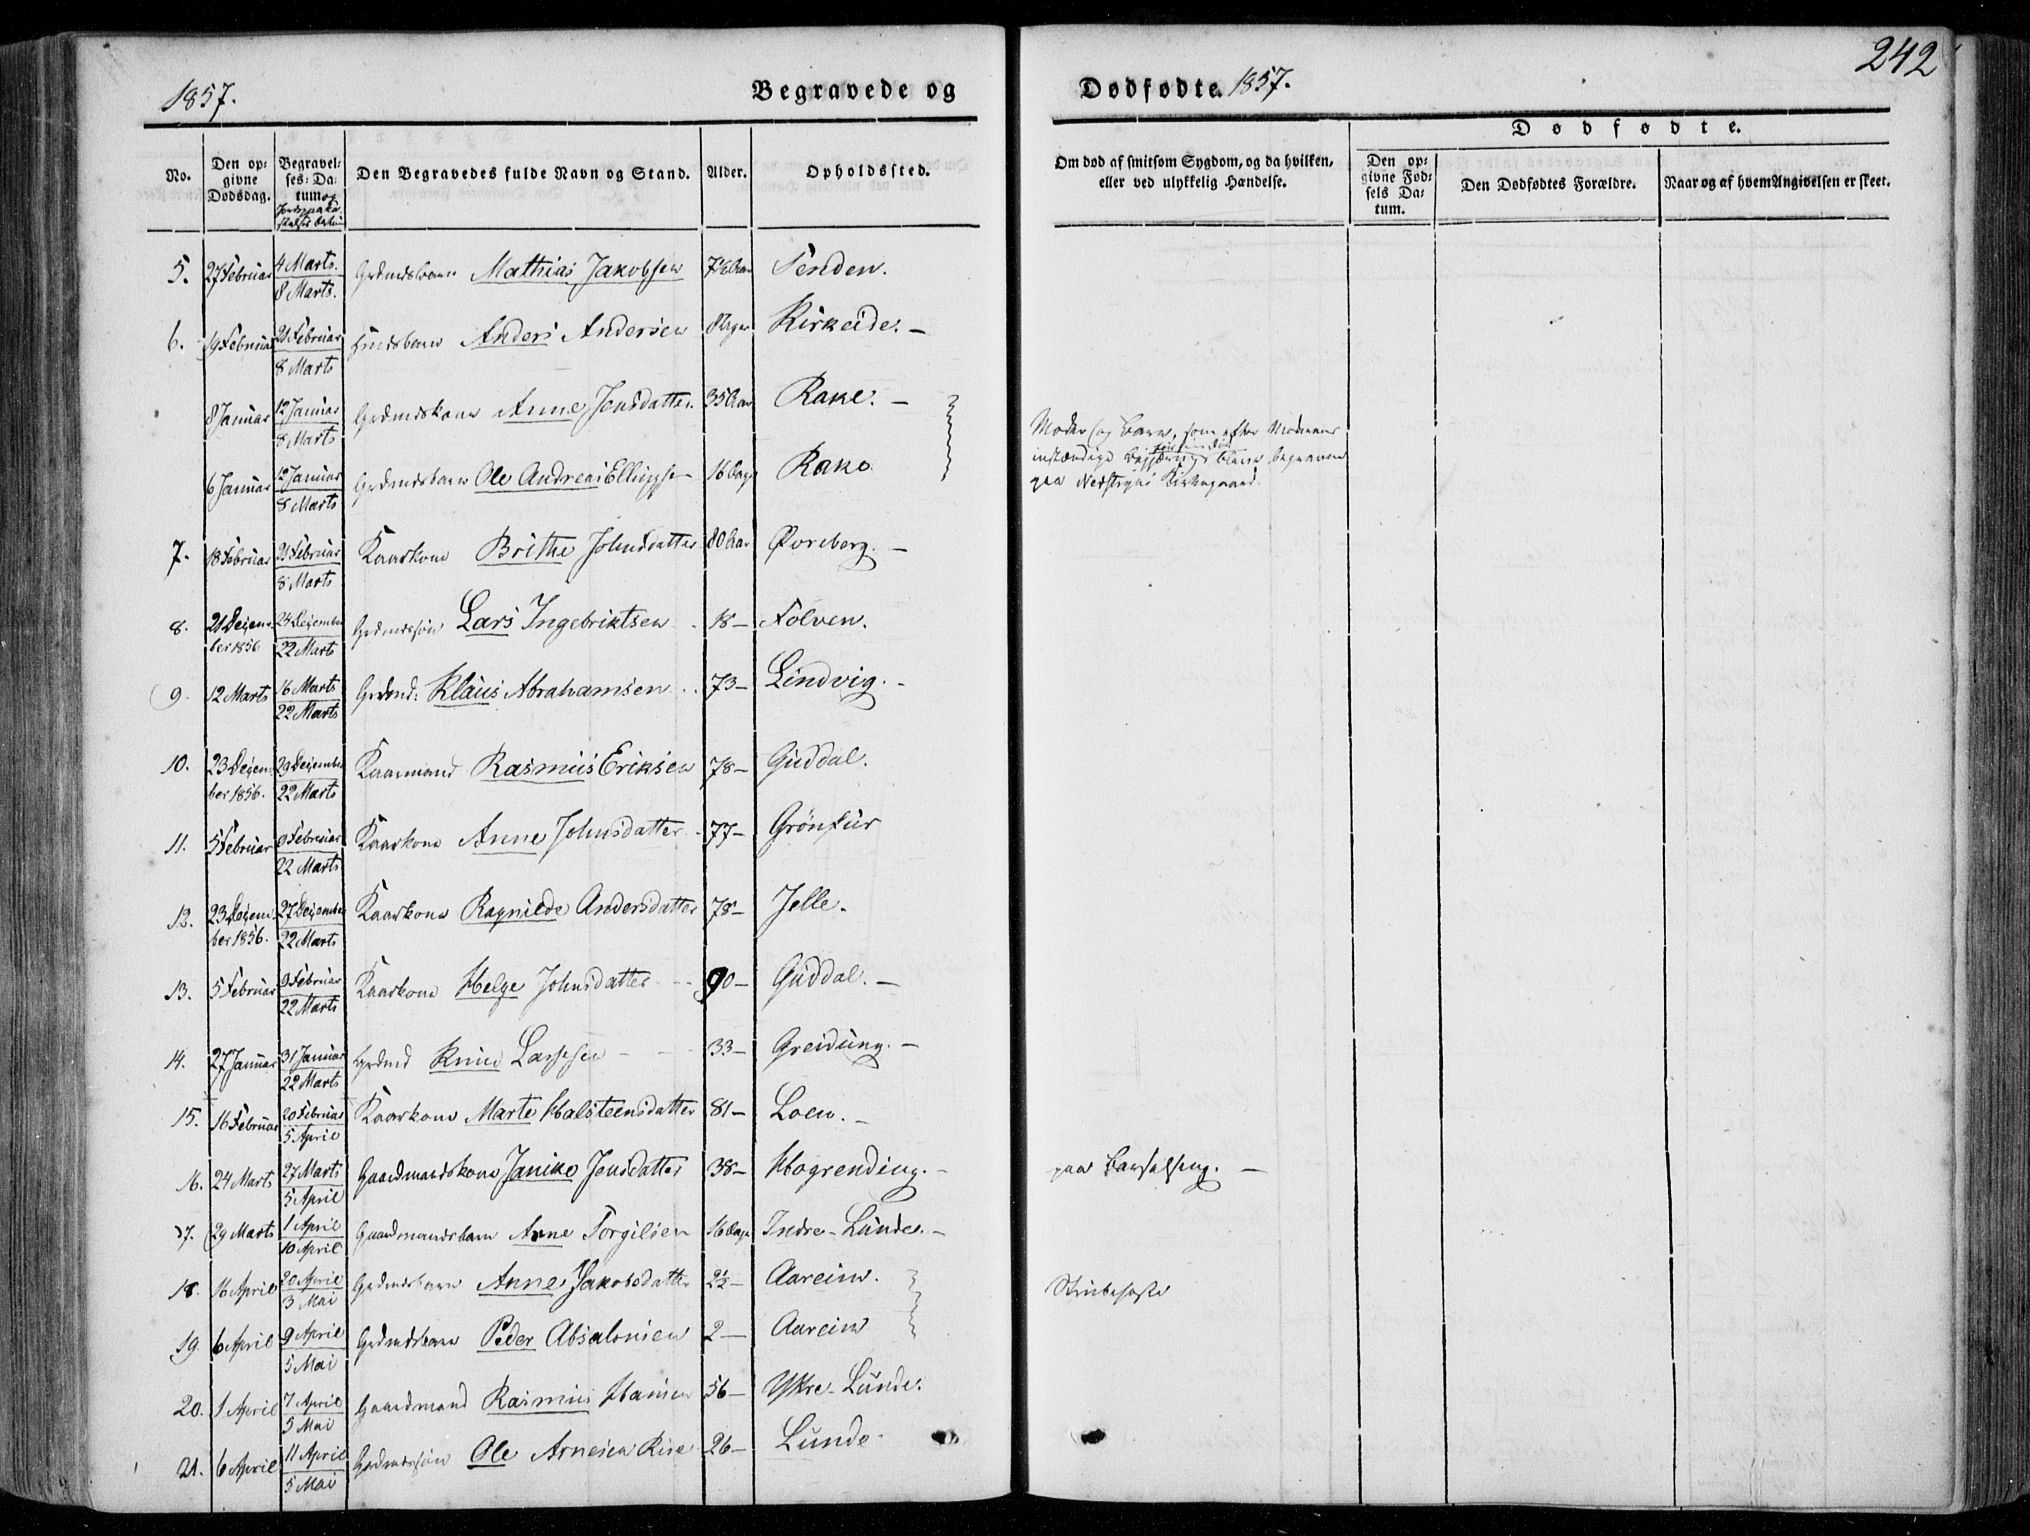 1857.
Begravede og
Dødfødte. 1857.
242
No.
Den op-
givne
Dødsdag.
Begravel-
ses-Da-
tum og
Den Begravedes fulde Navn og Stand.
Alder.
Opholdssted.
Om død af smitsom Sygdom, og da hvilken,
eller ved ulykkelig Hændelse.
Dødfødte.
Den op-
givne Fød-
sels Da-
tum.
Den Dødfødtes Forældre.
Naar og af hvem Angivelsen er skeet.
5. 27 Februar 4 Marts. 8 Marts. Grdmdsbarn Mathias Jakobsen 7½ Aar Tenden.
6. 19 Februar 21 Februar 8 Marts Hmdsbarn Anders Andersen 8 Kirkeide. –
8 Januar 12 Januar 8 Marts Grdmdskone Anne Jensdatter. 35 Aar Rake. –
6 Januar 12 Januar 8 Marts Grdmdsbarn Ole Andreas Ellingsen 16 Dage Rake
Moder og Barn, som efter Moderens
indstændige Begjæring bleve begravne
paa Nedstryns Kirkegaard.
7. 18 Februar 21 Februar 8 Marts Kaarkone Brithe Johnsdatter 80 Aar Øvreberg. –
8. 21 Decem- ber 1856 24 December 22 Marts Grdmdssøn Lars Ingebriktsen 18 – Folven.
9. 12 Marts 16 Marts 22 Marts Grdmd: Klaus Abrahamsen 73 – Lindvig. –
10. 23 Decem- ber 1856. 29 December 22 Marts Kaarmand Rasmus Eriksen 78 – Guddal.
11. 5 Februar 9 Februar 22 Marts Kaarkone Anne Johnsdatter 77 – Grönfur
12. 23 Decem- ber 1856. 27 December 22 Marts Kaarkone Ragnilde Andersdatter 78 – Jelle.
13. 5 Februar 9 Februar 22 Marts Kaarkone Helge Johnsdatter 90 – Guddal. –
14. 27 Januar 31 Januar 22 Marts Grdmd Knud Lassesen 33 – Greidung. –
15. 16 Februar 20 Februar 5 April Kaarkone Marte Halsteensdatter 81 – Loen. –
16. 24 Marts 27 Marts 5 April Gaardmandskone Janike Jensdatter 38 – Hogrending. – paa Barselseng. –
17. 29 Marts 1 April 10 April Gaardmandsbarn Arne Torgilsen 16 Dage Indre-Lunde. –
18. 16 April 20 April 3 Mai Grdmdsbarn Anne Jakobsdatter 2½ – Aareim. Strubehoste
19. 6 April 9 April 5 Mai Grdmdsbarn Peder Absalonsen 2 – Aareim
20. 1 April 7 April 5 Mai Gaardmand Rasmus Hansen 56 – Ytre-Lunde.
21. 6 April 11 April 5 Mai Grdmdssøn Ole Arnesen Rise 26 – Lunde